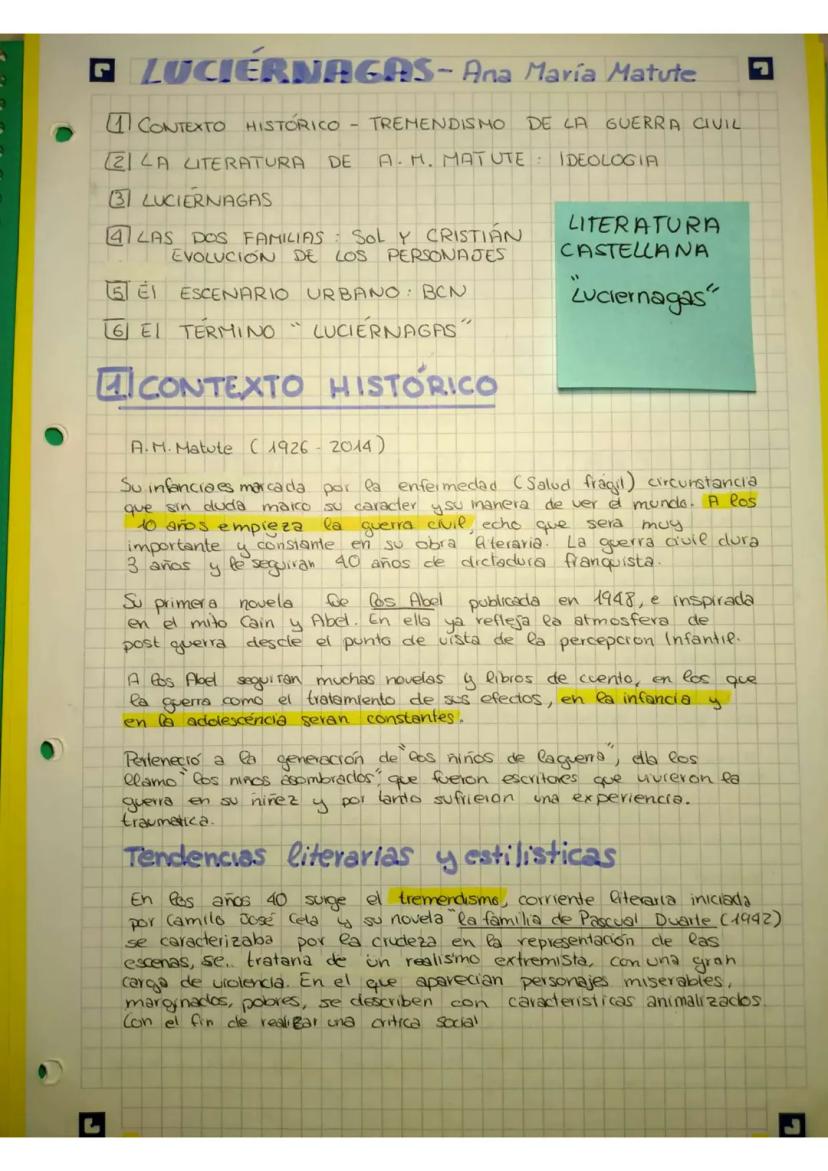 LUCIÉRNAGAS - Ana María Matute
1 CONTEXTO HISTÓRICO - TREMENDISMO DE LA GUERRA CIVIL
2 LA LITERATURA DE A.M. MATUTE : IDEOLOGIA
3 LUCIÉRNAGAS
4 LAS DOS FAMILIAS : SOL Y CRISTIÁN
EVOLUCIÓN DE LOS PERSONAJES
5 El ESCENARIO URBANO : BCN
6 El TÉRMINO "LUCIÉRNAGAS"
LITERATURA
CASTELLANA
"Luciernagas"
1 CONTEXTO HISTÓRICO
A.M. Matute (1926 - 2014)
Su infancia es marcada por la enfermedad (Salud frágil) circunstancia
que sin duda marco su caracter y su manera de ver el mundo. A los
10 años empieza la guerra civil, echo que sera muy
importante y constante en su obra literaria. La guerra civil dura
3 años y le seguiran 40 años de dictadura franquista.
Su primera novela fue Los Abel publicada en 1948, e inspirada
en el mito Cain y Abel. En ella ya refleja la atmosfera de
post guerra desde el punto de vista de la percepcion Infantil.
A Los Abel seguiran muchas novelas y libros de cuento, en los que
la guerra como el tratamiento de sus efectos, en la infancia y
en la adolescencia seran constantes.
Perteneció a la generación de "los niños de la guerra", ella los
llamo "los niños asombrados", que fueron escritores que vivieron la
guerra en su niñez y por tanto sufrieron una experiencia.
traumatica.
Tendencias literarias y estilisticas
En los años 40 surge el tremendismo, corriente literaria iniciada
por Camilo José Cela y su novela "La familia de Pascual Duarte (1942)
se caracterizaba por la crudeza en la representación de las
escenas, se.. trataria de un realismo extremista, con una gran
carga de violencia. En el que aparecian personajes miserables,
marginados, pobres, se describen con caracteristicas animalizados.
Con el fin de realizar una critica social